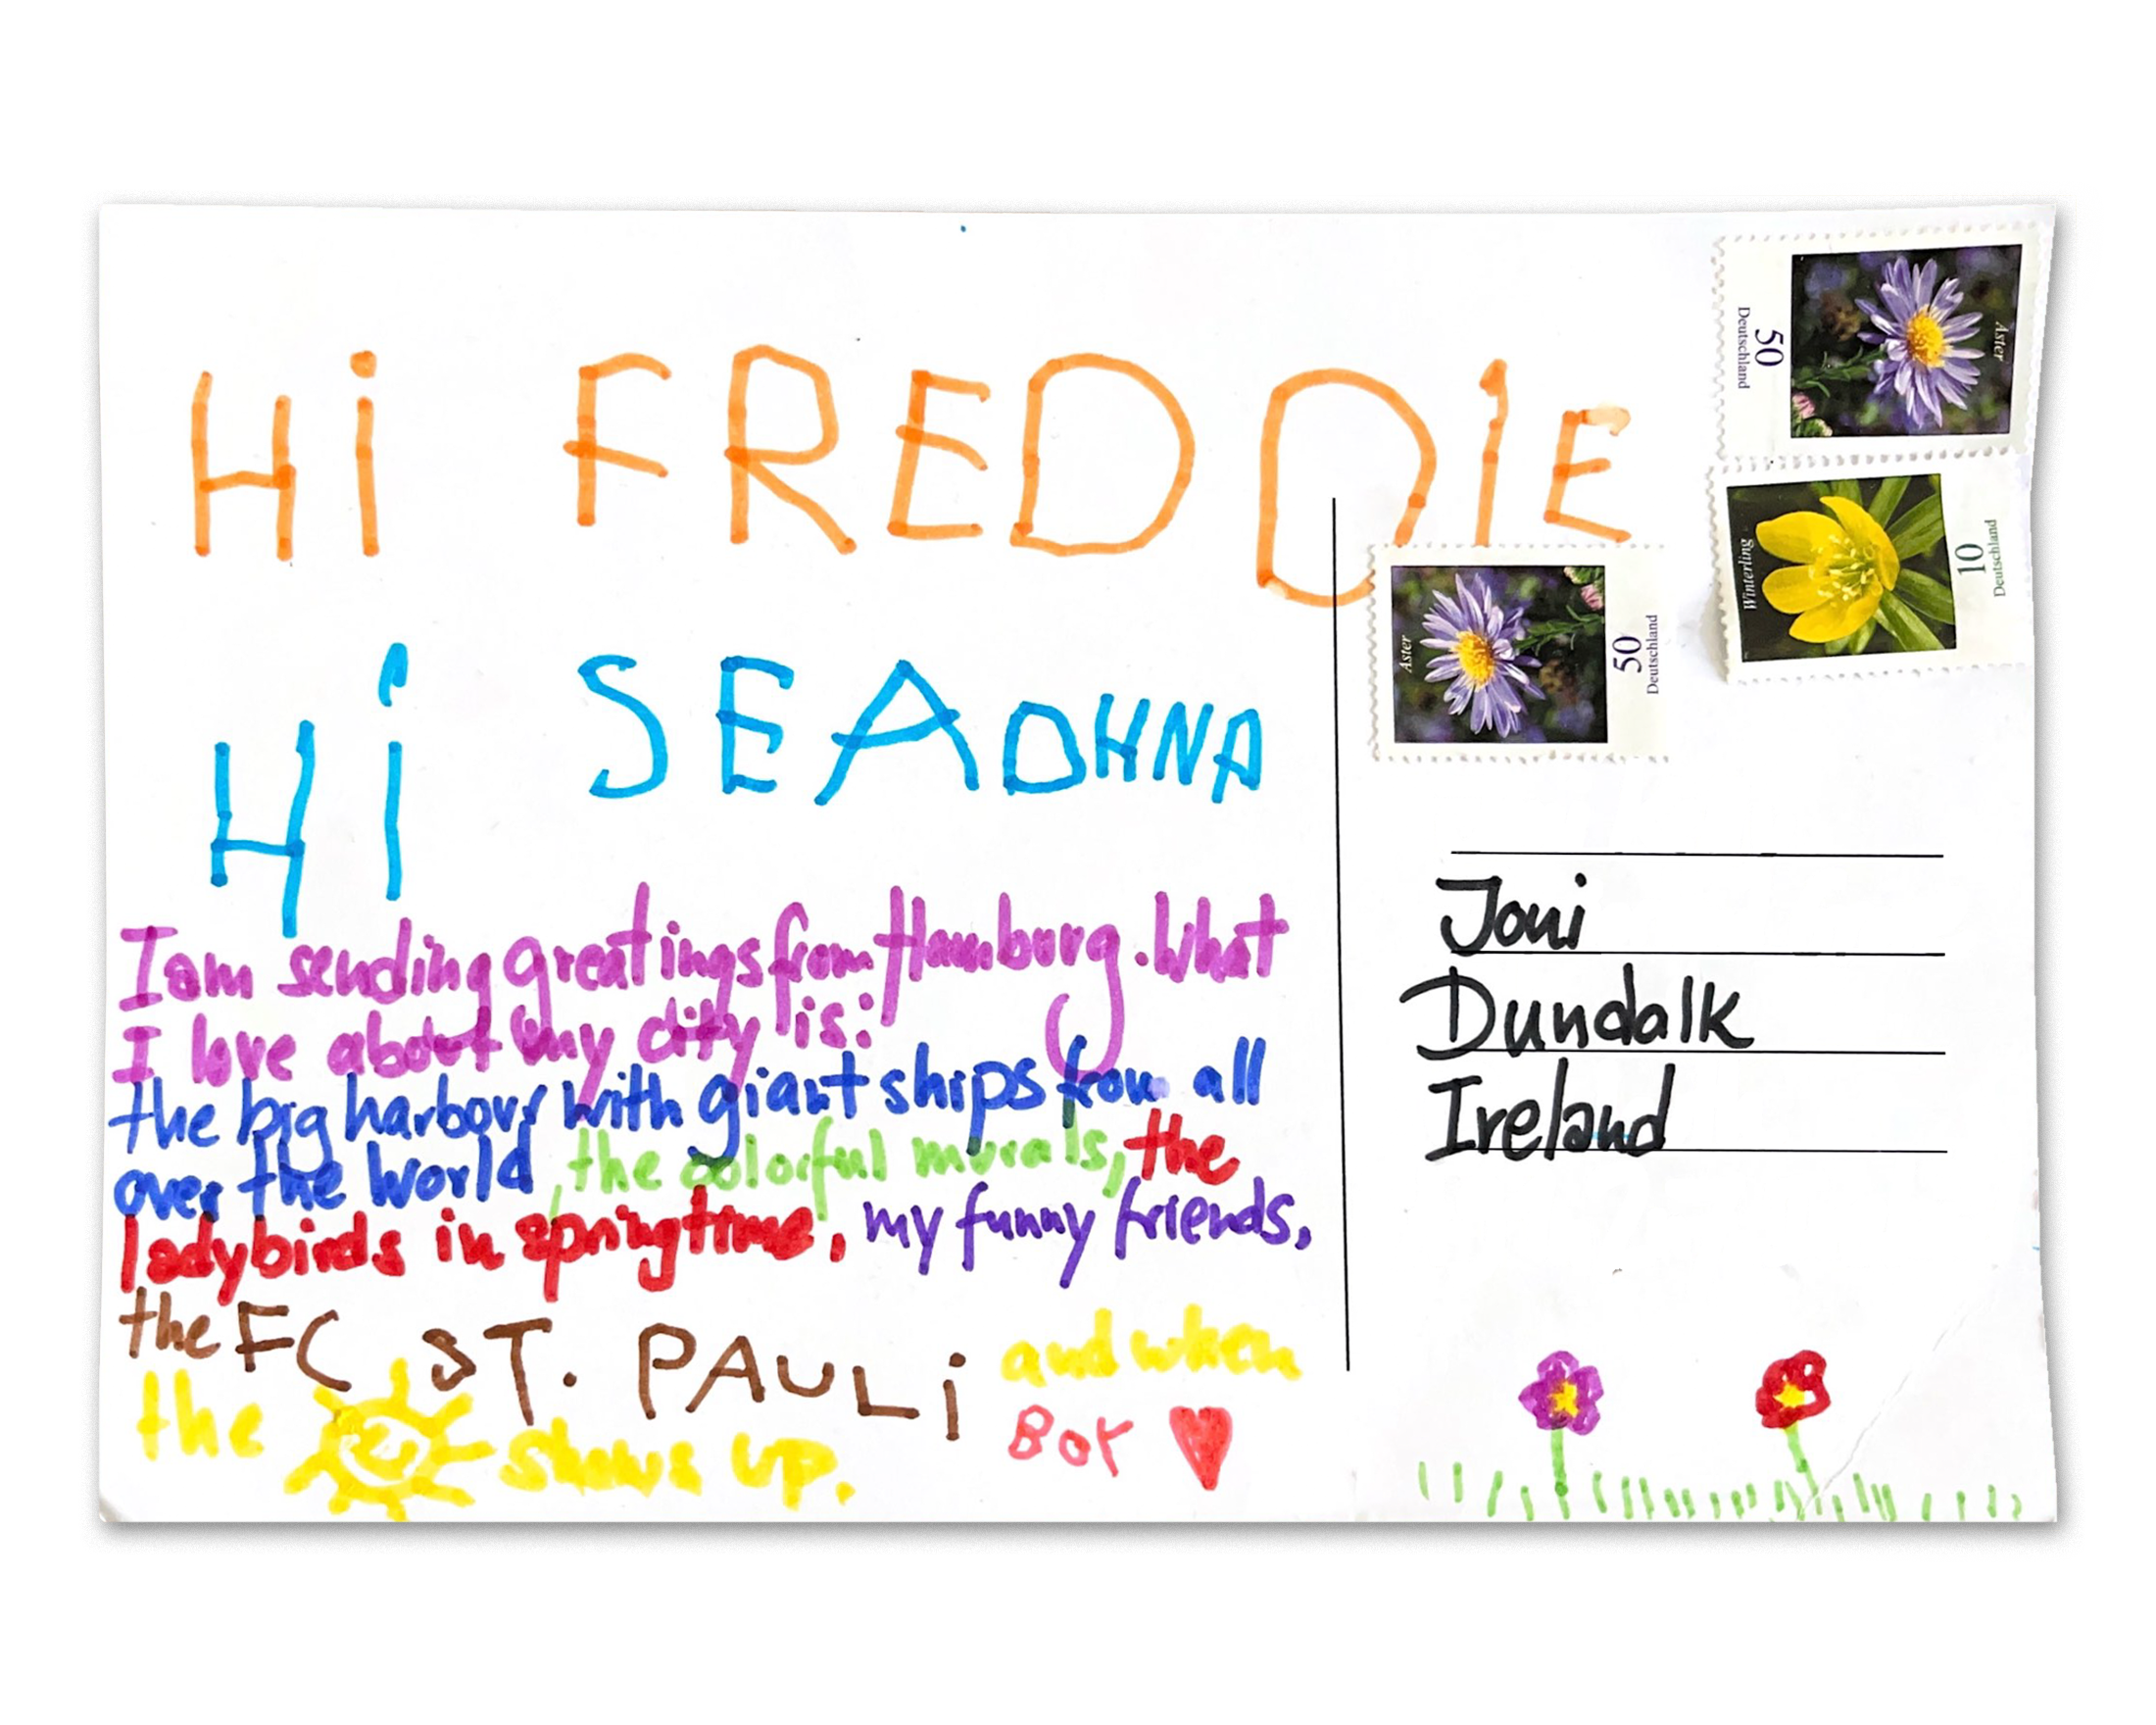 Hi FREDDIE
Hi SEADHNA
I am sending greatings from Hamburg. What
I love about my city is:
the big harbour with giant ships from all
over the world, the colorful murals, the
ladybirds in springtime, my funny friends,
the FC ST. PAULi and when
the shows up.
BOY
50
Deutschland
Aster
Winterling
10
Deutschland
Aster
50
Deutschland
Joni
Dundalk
Ireland